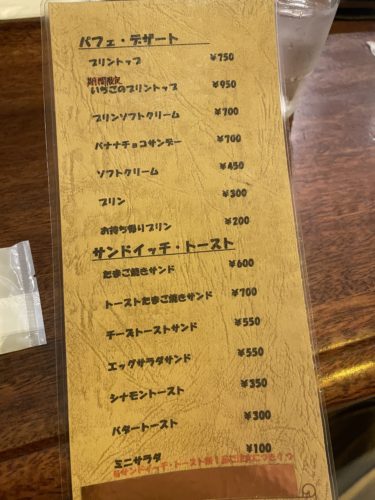 パフェ・デザート
プリントップ ¥750
期間限定
いちごのプリントップ ¥950
プリンソフトクリーム ¥700
バナナチョコサンデー ¥700
ソフトクリーム ¥450
プリン ¥300
お持ち帰りプリン ¥200
サンドイッチ・トースト
たまご焼きサンド ¥600
トーストたまご焼きサンド ¥700
チーズトーストサンド ¥550
エッグサラダサンド ¥550
シナモントースト ¥350
バタートースト ¥300
ミニサラダ ¥100
サンドイッチ・トースト類1品ご注文につき1つ